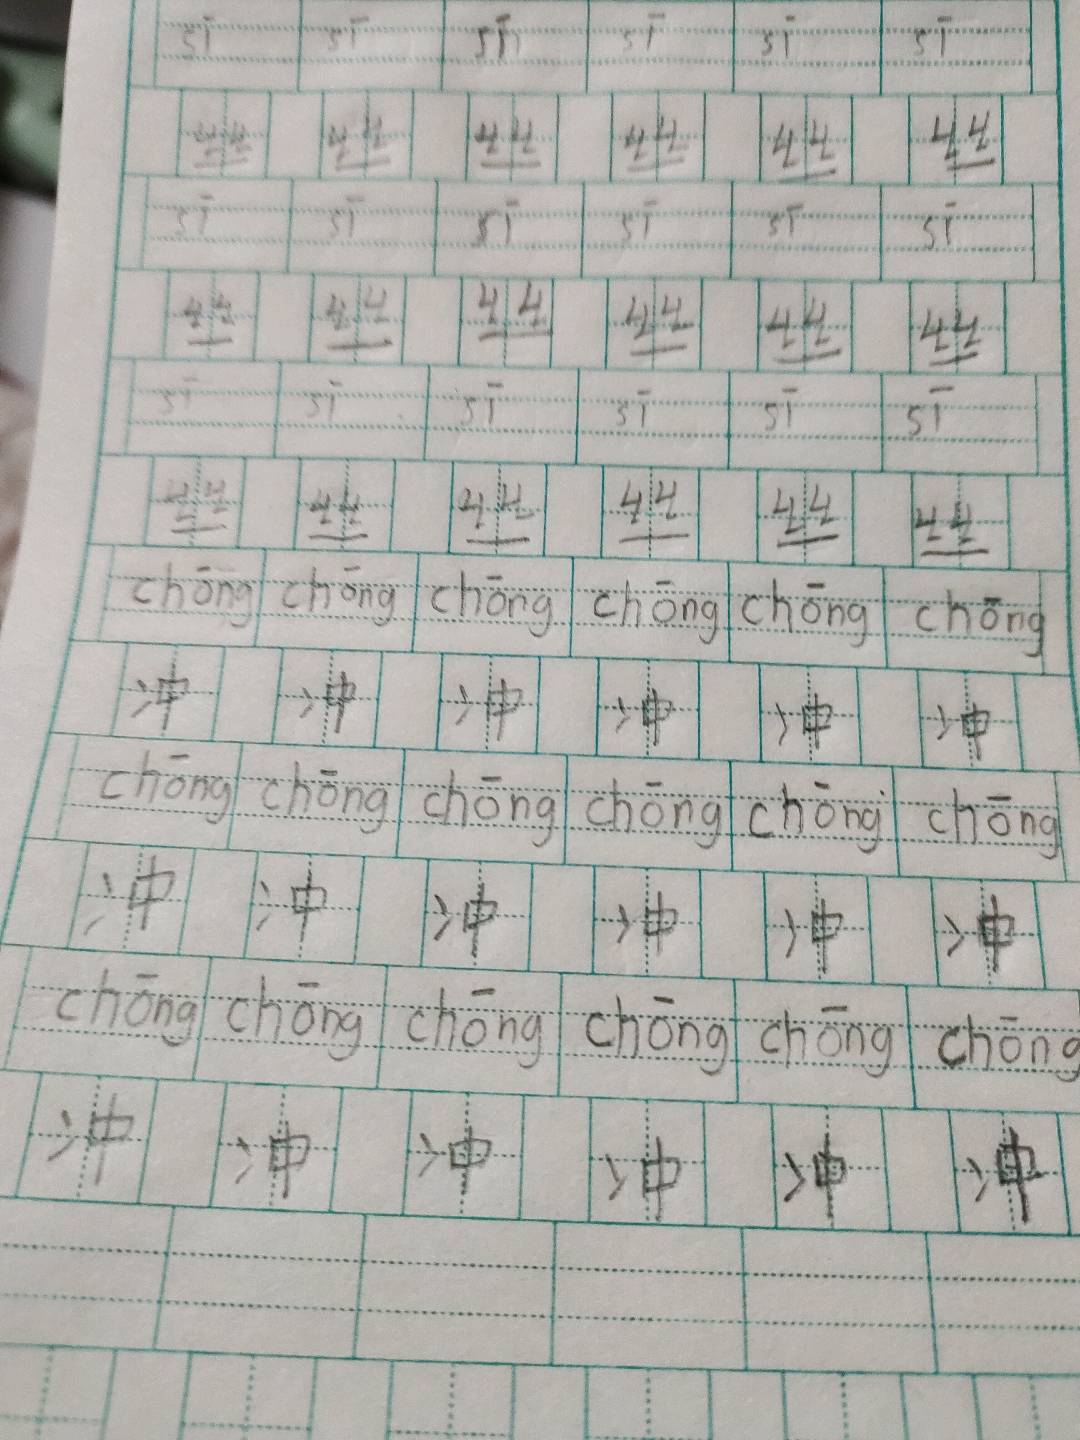 sī sī sī sī sī sī
丝 丝 丝 丝 丝 丝
sī sī sī sī sī sī
丝 丝 丝 丝 丝 丝
sī sī sī sī sī sī
丝 丝 丝 丝 丝 丝
chōng chōng chōng chōng chōng chōng
冲 冲 冲 冲 冲 冲
chōng chōng chōng chōng chōng chōng
冲 冲 冲 冲 冲 冲
chōng chōng chōng chōng chōng chōng
冲 冲 冲 冲 冲 冲